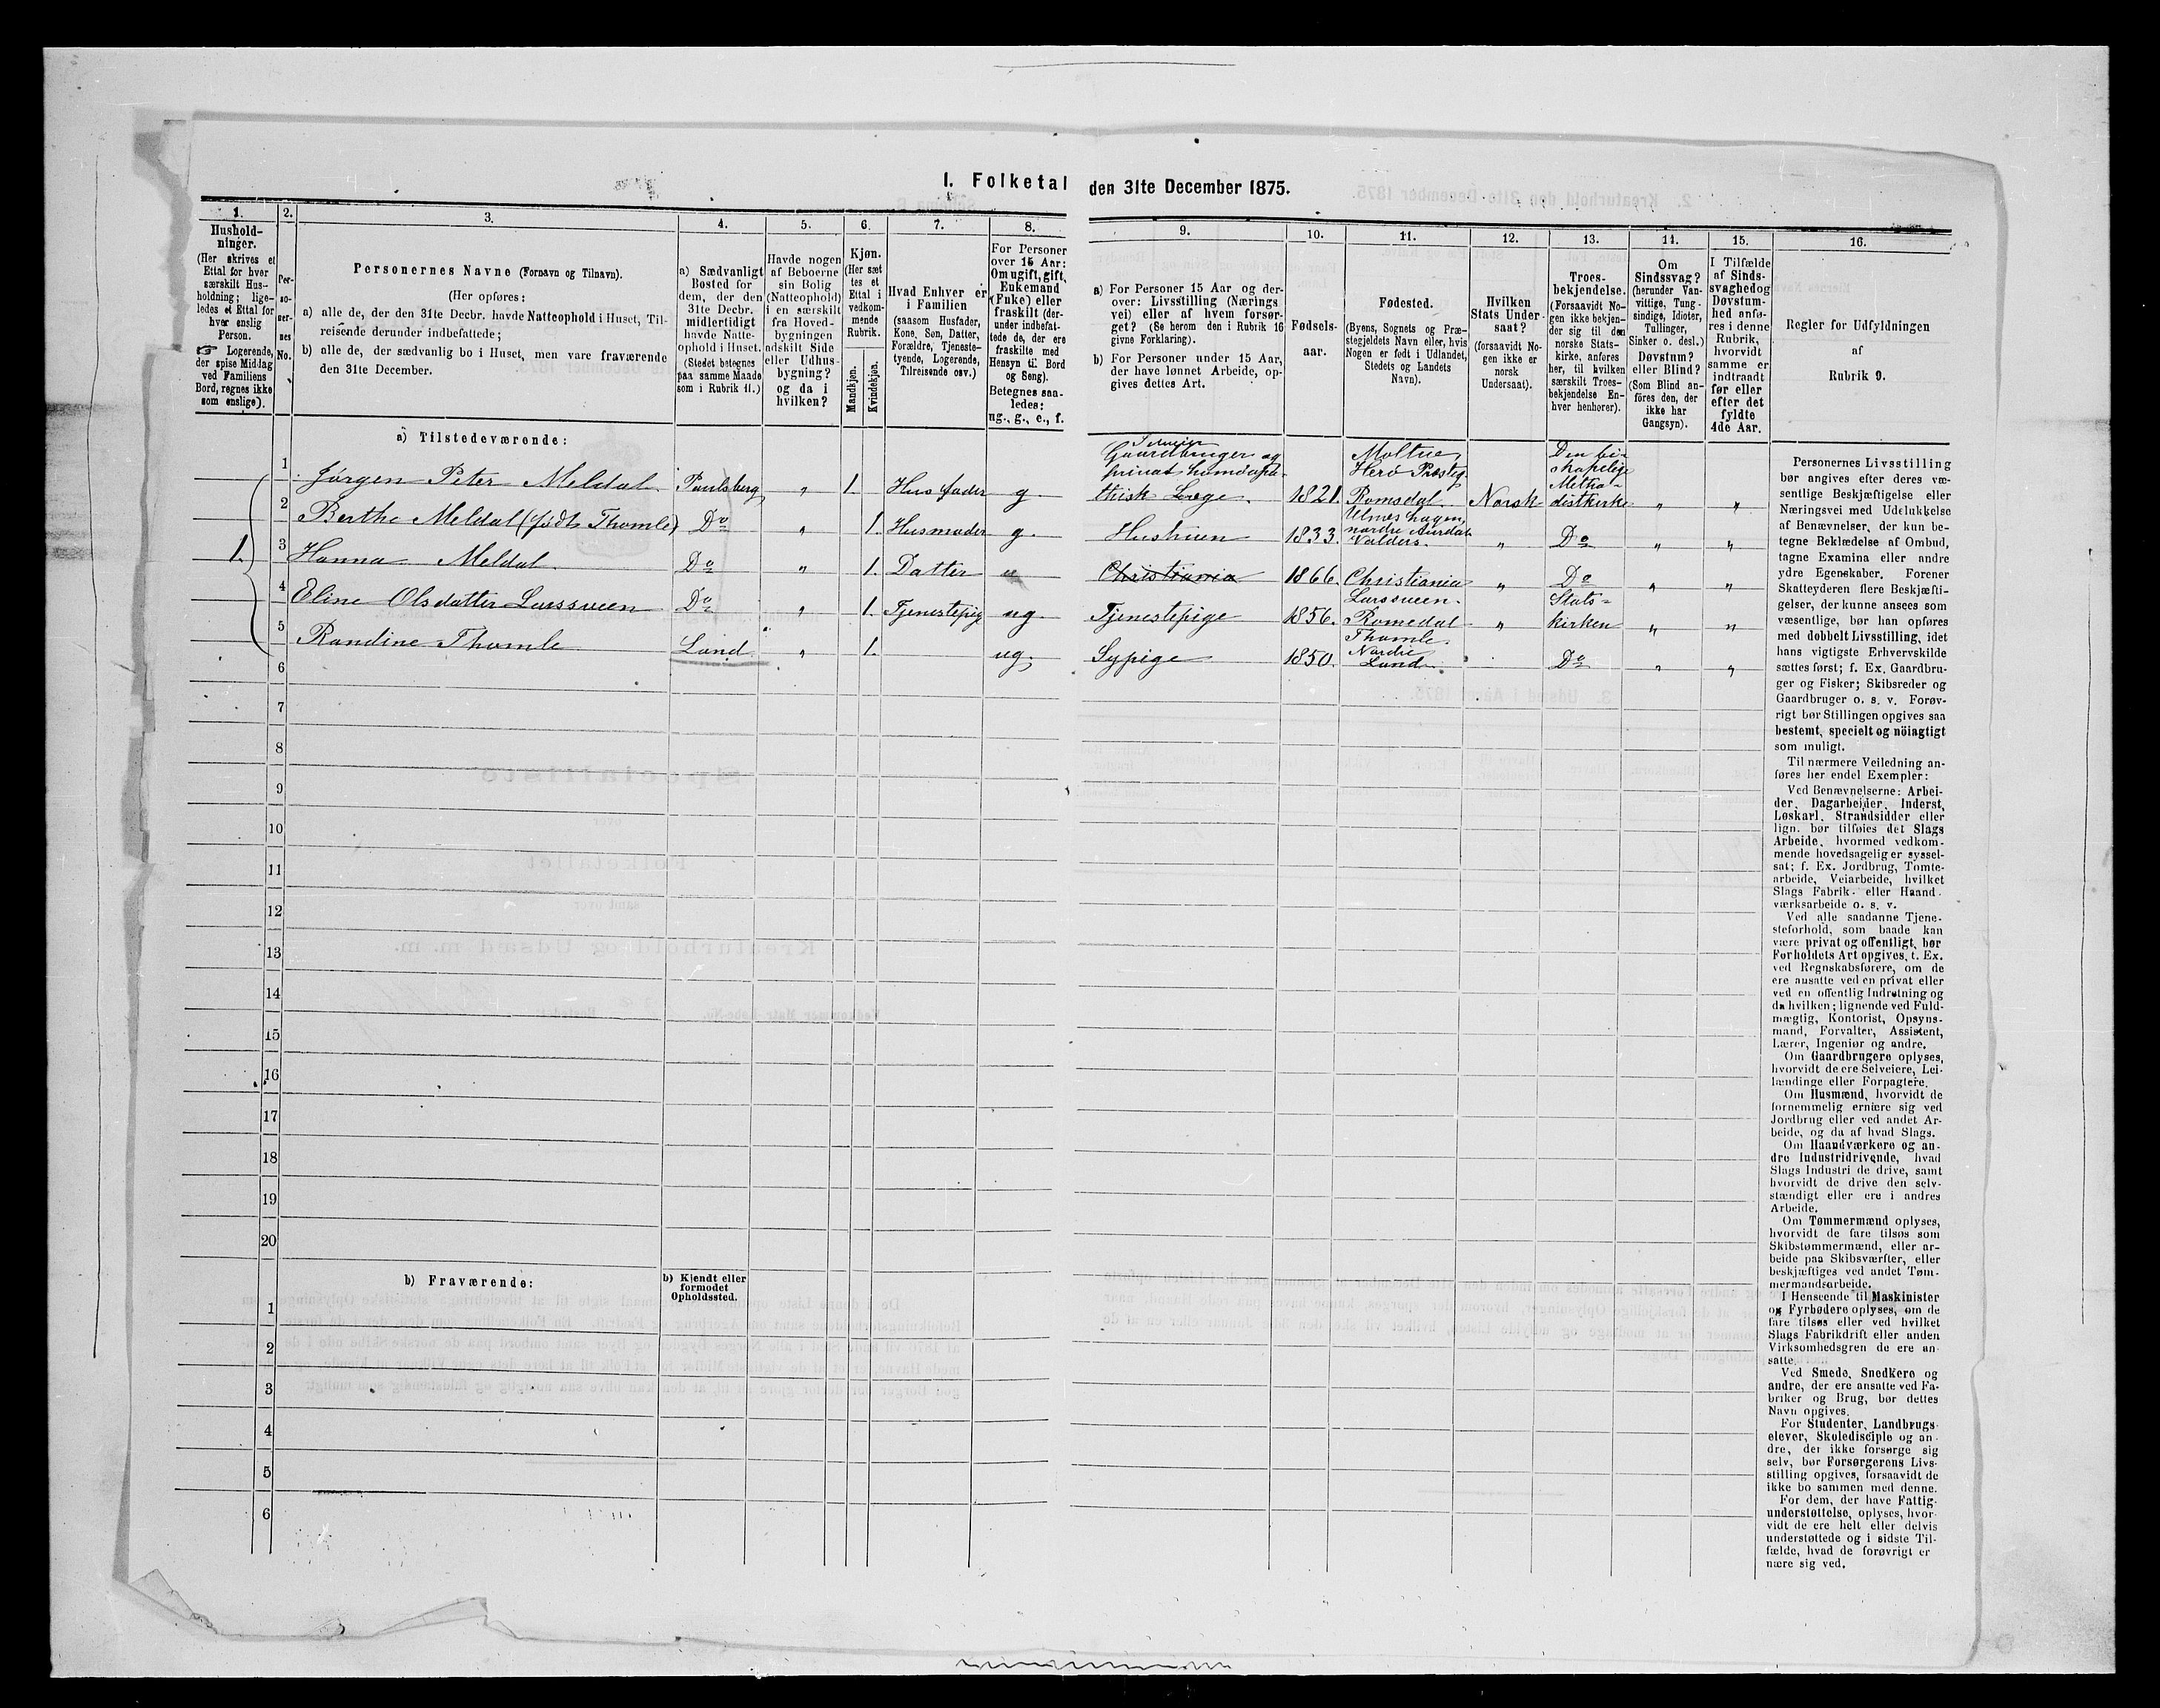 I. Folketal den 31te December 1875.
1.
Hushold-
ninger.
(Her skrives et
Ettal for hver
særskilt Hus-
holdning; lige-
ledes et Ettal for
hver enslig
Person.
☞ Logerende,
der spise Middag
ved Familiens
Bord, regnes ikke
som enslige).
2.
Per-
so-
ner-
nes
No.
3.
Personernes Navne (Fornavn og Tilnavn).
(Her opføres:
a) alle de, der den 31te Decbr. havde Natteophold i Huset, Til-
reisende derunder indbefattede;
b) alle de, der sædvanlig bo i Huset, men vare fraværende
den 31te December.
4.
a) Sædvanligt
Bosted for
dem, der den
31te Decbr.
midlertidigt
havde Natte-
ophold i Huset.
(Stedet betegnes
paa samme Maade
som i Rubrik 11.)
5.
Havde nogen
af Beboerne
sin Bolig
(Natteophold)
i en særskilt
fra Hoved-
bygningen
adskilt Side
eller Udhus-
bygning?
og da i
hvilken?
6.
Kjøn.
(Her sæt
tes et
Ettal i
vedkom-
mende
Rubrik.
Mandkjøn.
Kvindekjøn.
7.
Hvad Enhver er
i Familien
(saasom Husfader,
Kone, Søn, Datter,
Forældre, Tjeneste-
tyende, Logerende,
Tilreisende osv.)
8.
For Personer
over 15 Aar:
Om ugift, gift,
Enkemand
(Enke) eller
fraskilt (der-
under indbefat-
tede de, der ere
fraskilte med
Hensyn til Bord
og Seng).
Betegnes saa-
ledes:
ug., g., e., f.
9.
a) For Personer 15 Aar og der-
over: Livsstilling (Nærings
vei) eller af hvem forsør-
get? (Se herom den i Rubrik 16
givne Forklaring).
b) For Personer under 15 Aar,
der have lønnet Arbeide, op-
gives dettes Art.
10.
Fødsels-
aar.
11.
Fødested.
(Byens, Sognets og Præ-
stegjeldets Navn eller, hvis
Nogen er født i Udlandet,
Stedets og Landets
Navn).
12.
Hvilken
Stats Under-
saat?
(forsaavidt No-
gen ikke er
norsk
Undersaat).
13.
Troes-
bekjendelse.
(Forsaavidt No-
gen ikke bekjen-
der sig til den
norske Stats-
kirke, anføres
her, til hvilken
særskilt Troes-
bekjendelse En-
hver henhører).
14.
Om
Sindssvag?
(herunder Van-
vittige, Tung-
sindige, Idioter,
Tullinger,
Sinker o. desl.)
Døvstum?
eller Blind?
(Som Blind an-
føres den, der
ikke har
Gangsyn).
15.
I Tilfælde
af Sinds-
svaghed og
Døvstum-
hed anfø-
res i denne
Rubrik,
hvorvidt
samme er
indtraadt
før eller
efter det
fyldte
4de Aar.
16.
Regler for Udfyldningen
af
Rubrik 9.
a) Tilstedeværende:
1 Jørgen Peter Meldal Paulsberg " 1. Husfader g. Selveier Gaardbruger og privat homöopathisk Læge. 1821. Moltue, Herö Præsteg. Romsdal. Norsk Den biskopelige Methodistkirke " "
2 Berthe Meldal (født Thomle) Do " 1. Husmoder g. Hustruen 1833. Ulneshagen, nordre Aurdal Valders. " Do " "
1. 3 Hanna Meldal. Do " 1. Datter Christiania 1866. Christiania " Do " "
4 Eline Olsdatter Larssveen Do " 1. Tjenestepig ug. Tjenestepige 1856. Larssveen. Romedal " Statskirken " "
5 Randine Thomle Land " 1. ug. Sypige 1850. Thomle. Nordre Land. Do " "
6
7
8
9
10
11
12
13
14
15
16
17
18
19
20
b) Fraværende:
b) Kjendt eller
formodet
Opholdssted.
1
2
3
4
5
6
Personernes Livsstilling
bør angives efter deres væ-
sentlige Beskjæftigelse eller
Næringsvei med Udelukkelse
af Benævnelser, der kun be-
tegne Beklædelse af Ombud,
tagne Examina eller andre
ydre Egenskaber. Forener
Skatteyderen flere Beskjæfti-
gelser, der kunne ansees som
væsentlige, bør han opføres
med dobbelt Livsstilling, idet
hans vigtigste Erhvervskilde
sættes først; f. Ex. Gaardbru-
ger og Fisker; Skibsreder og
Gaardbruger o. s. v. Forøv-
rigt bør Stillingen opgives saa
bestemt, specielt og nöiagtigt
som muligt.
Til nærmere Veiledning an-
føres her endel Exempler:
Ved Benævnelserne: Arbei-
der, Dagarbeider, Inderst,
Løskarl, Strandsidder eller
lign. bør tilføies det Slags
Arbeide, hvormed vedkom-
mende hovedsagelig er syssel-
sat; f. Ex. Jordbrug, Tomte-
arbeide, Veiarbeide, hvilket
Slags Fabrik- eller Haand-
værksarbeide o. s. v.
Ved alle saadanne Tjene-
steforhold, som baade kan
være privat og offentligt, bør
Forholdets Art opgives, t. Ex.
ved Regnskabsførere, om de
ere ansatte ved en privat eller
ved en offentlig Indretning og
da hvilken; lignende ved Fuld-
mægtig, Kontorist, Opsyns-
mand, Forvalter, Assistent,
Lærer, Ingeniør og andre.
Om Gaardbrugere oplyses,
hvorvidt de ere Selveiere, Lei-
lændinge eller Forpagtere.
Om Husmænd, hvorvidt de
fornemmelig ernære sig ved
Jordbrug eller ved andet Ar-
beide, og da af hvad Slags.
Om Haandværkere og an-
dre Industridrivende, hvad
Slags Industri de drive, samt
hvorvidt de drive den selv-
stændigt eller ere i andres
Arbeide.
Om Tømmermænd oplyses,
hvorvidt de fare tilsøs som
Skibstømmermænd, eller ar-
beide paa Skibsværfter, eller
beskjæftiges ved andet Tøm-
mermandsarbeide.
I Henseende til Maskinister
og Fyrbødere oplyses, om de
fare tilsøs eller ved hvilket
Slags Fabrikdrift eller anden
Virksomhedsgren de ere an-
satte.
Ved Smede, Snedkere og
andre, der ere ansatte ved Fa-
briker og Brug, bør dettes
Navn opgives.
For Studenter, Landbrugs-
elever, Skoledisciple og an-
dre, der ikke forsørge sig
selv, bør Forsørgerens Livs-
stilling opgives, forsaavidt de
ikke bo sammen med denne.
For dem, der have Fattig-
understøttelse, oplyses, hvor-
vidt de ere helt eller delvis
understøttede og i sidste Til-
fælde, hvad de forøvrigt er
nære sig ved.